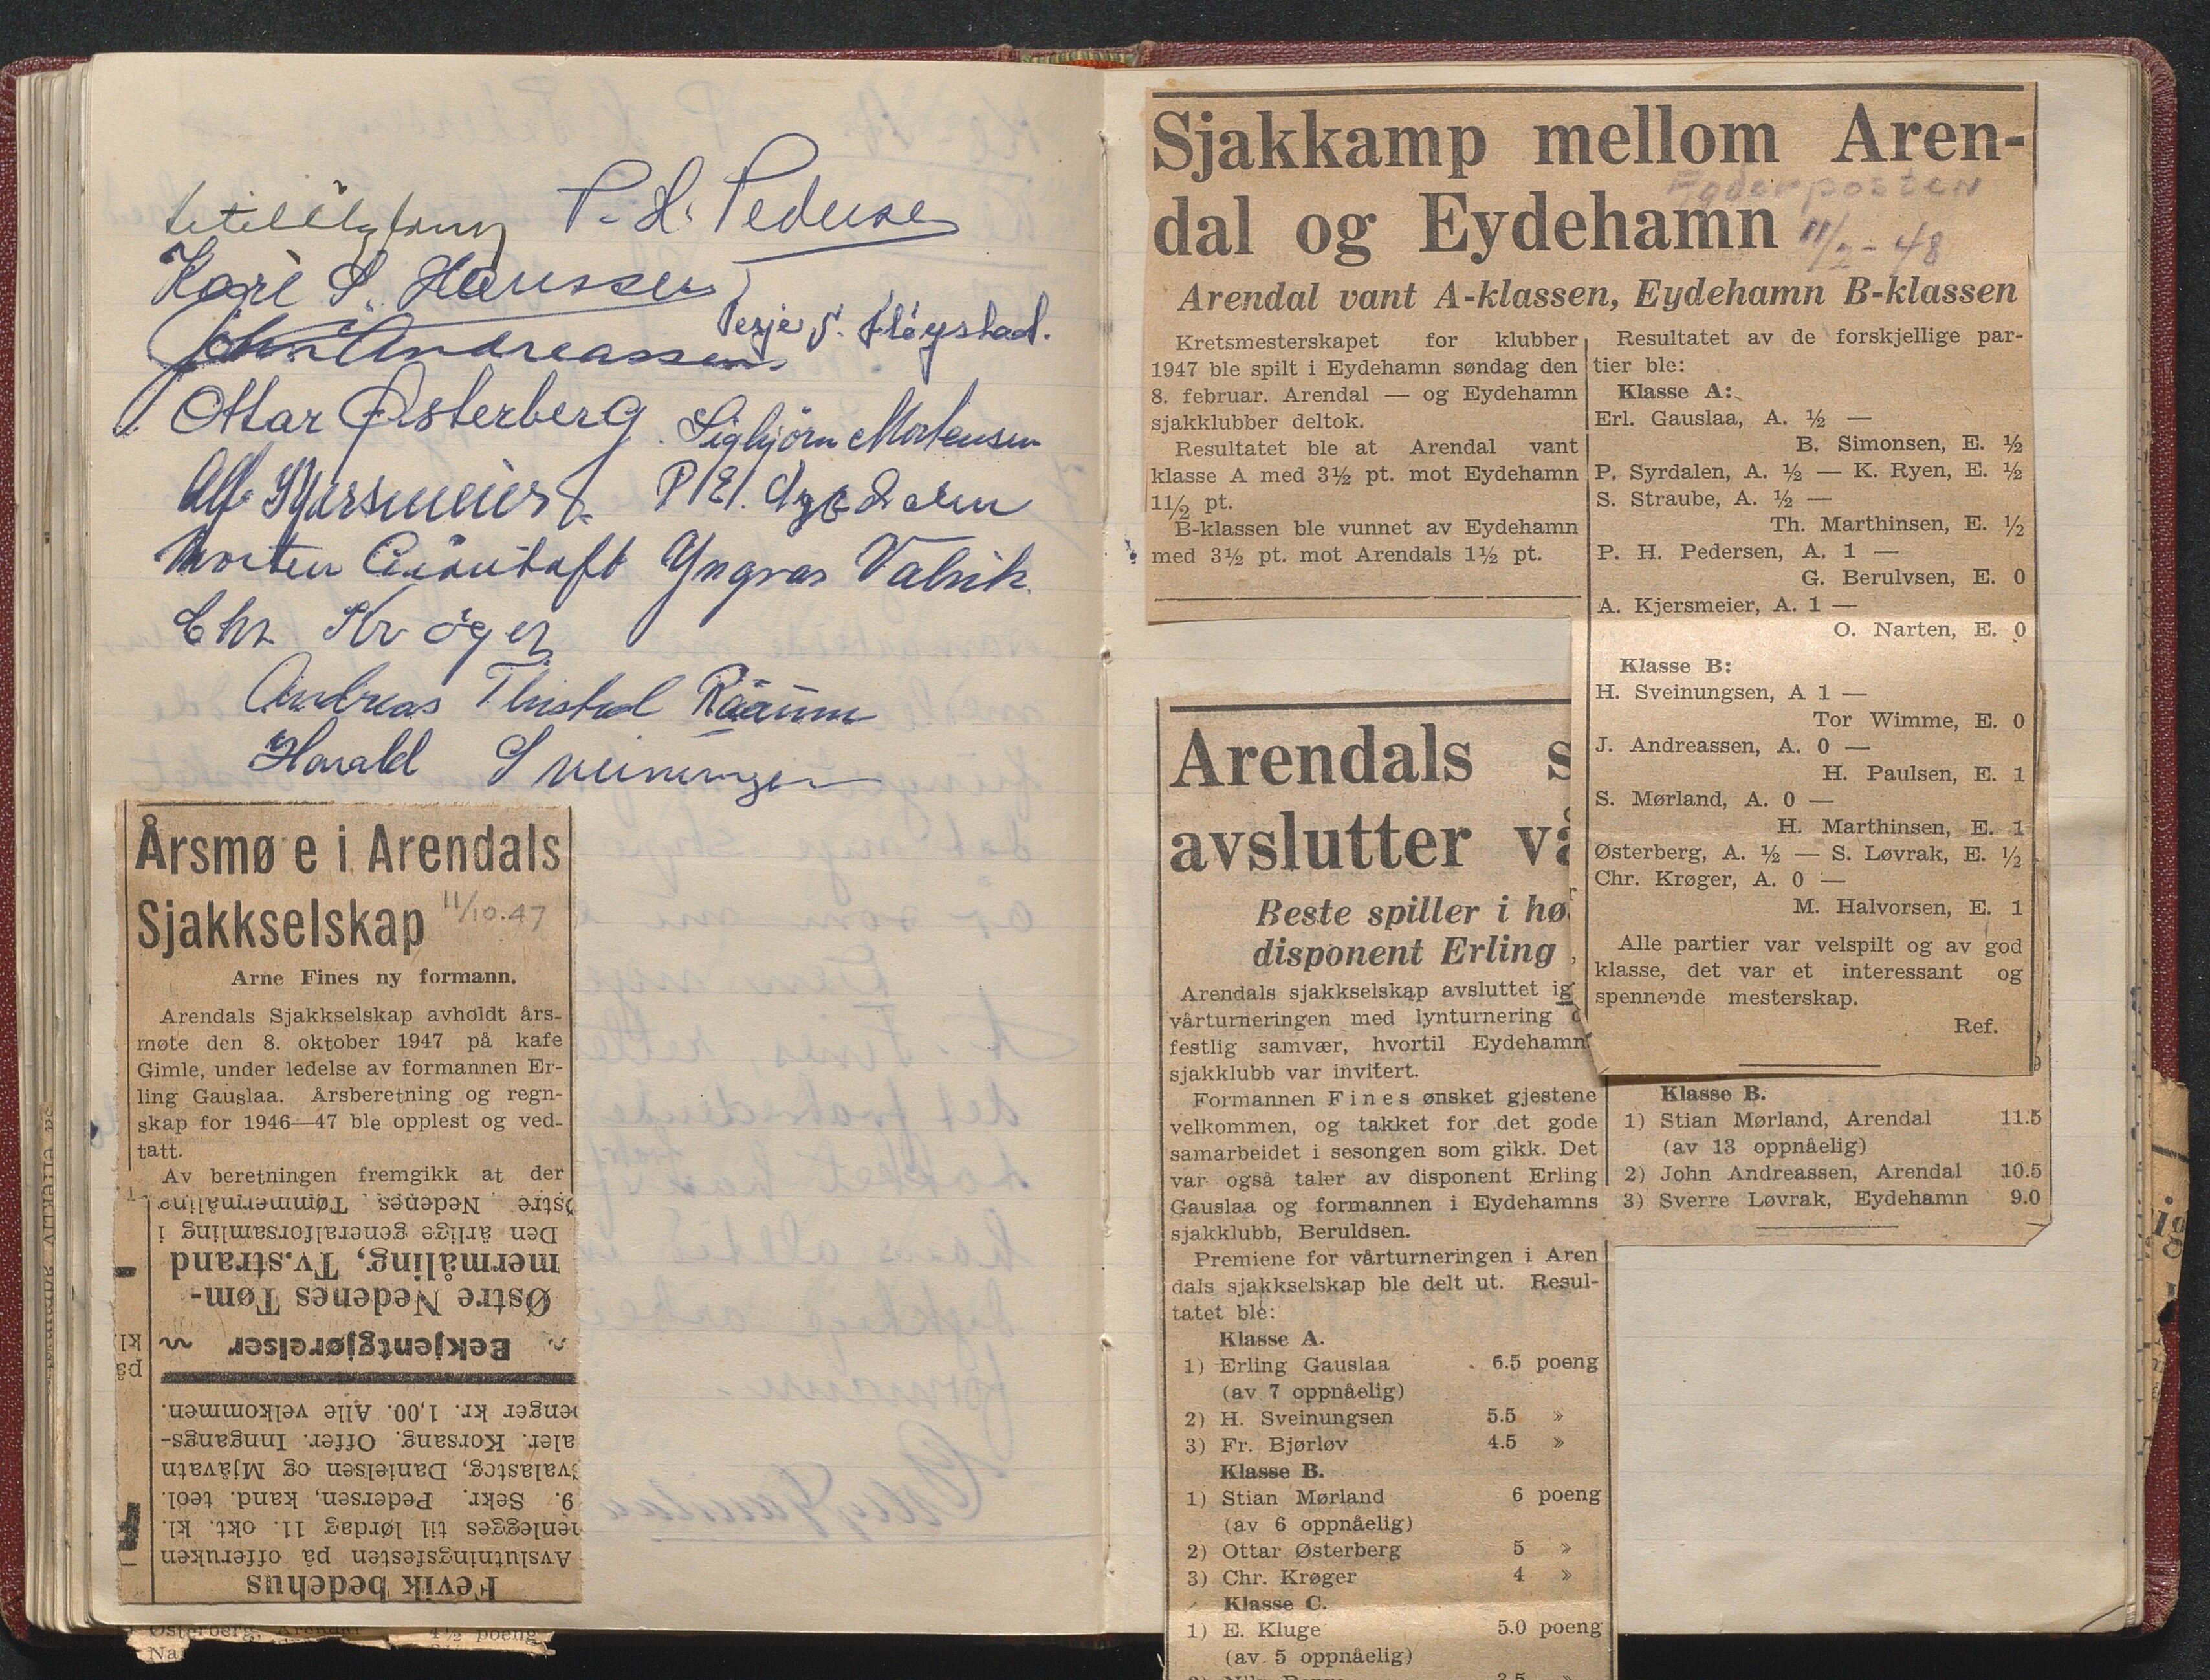 P. H. Pedersen
Kåre S. Hanssen
Terje S. Fløystad.
John Andreassen
Ottar Østerberg
Sigbjörn Mortensen
Alf Kjersmeier
Morten
Yngvar Valvik
Chr Krøger
Andreas Thisted Raaum
Harald Sveinungsen
Årsmø e i Arendals
Sjakkselskap
11/10.47
Arne Fines ny formann.
Arendals Sjakkselskap avholdt års-
møte den 8. oktober 1947 på kafe
Gimle, under ledelse av formannen Er-
ling Gauslaa. Årsberetning og regn-
skap for 1946—47 ble opplest og ved-
tatt.
Av beretningen fremgikk at der
Fevik bedehus
Avslutningsfesten på offeruken
enlegges til lørdag 11. okt. kl.
9. Sekr. Pedersen, kand. teol.
valastog, Danielsen og Mjåvatn
aler. Korsang. Offer. Inngangs-
enger kr. 1,00. Alle velkommen.
Bekjentgjørelser
Østre Nedenes Tøm-
mermåling, Tv.strand
Den årlige generalforsamling i
Østre Nedenes Tømmermåling
på
kl
Østerberg, Arendal 4½ poeng
Na
Sjakkamp mellom Aren-
dal og Eydehamn
Agderposten
11/2-48
Arendal vant A-klassen, Eydehamn B-klassen
Kretsmesterskapet for klubber
1947 ble spilt i Eydehamn søndag den
8. februar. Arendal — og Eydehamn
sjakklubber deltok.
Resultatet ble at Arendal vant
klasse A med 3½ pt. mot Eydehamn
11/2 pt.
B-klassen ble vunnet av Eydehamn
med 3½ pt. mot Arendals 1½ pt.
Resultatet av de forskjellige par-
tier ble:
Klasse A:
Erl. Gauslaa, A. ½ —
B. Simonsen, E. ½
P. Syrdalen, A. ½ — K. Ryen, E. ½
S. Straube, A. ½ —
Th. Marthinsen, E. ½
P. H. Pedersen, A. 1 —
G. Berulvsen, E. 0
A. Kjersmeier, A. 1 —
O. Narten, E. 0
Klasse B:
H. Sveinungsen, A 1 —
Tor Wimme, E. 0
J. Andreassen, A. 0 —
H. Paulsen, E. 1
S. Mørland, A. 0 —
H. Marthinsen, E. 1
Østerberg, A. ½ — S. Løvrak, E. ½
Chr. Krøger, A. 0 —
M. Halvorsen, E. 1
Alle partier var velspilt og av god
klasse, det var et interessant og
spennende mesterskap.
Ref.
Arendals s
avslutter vå
Beste spiller i hø
disponent Erling
Arendals sjakkselskap avsluttet ig
vårturneringen med lynturnering o
festlig samvær, hvortil Eydehamn
sjakklubb var invitert.
Formannen Fines ønsket gjestene
velkommen, og takket for det gode
samarbeidet i sesongen som gikk. Det
var også taler av disponent Erling
Gauslaa og formannen i Eydehamns
sjakklubb, Beruldsen.
Premiene for vårturneringen i Aren
dals sjakkselskap ble delt ut. Resul-
tatet ble:
Klasse A.
1) Erling Gauslaa 6.5 poeng
(av 7 oppnåelig)
2) H. Sveinungsen 5.5 »
3) Fr. Bjørløv 4.5 »
Klasse B.
1) Stian Mørland 6 poeng
(av 6 oppnåelig)
2) Ottar Østerberg 5 »
3) Chr. Krøger 4 »
Klasse C.
1) E. Kluge 5.0 poeng
(av 5 oppnåelig)
9
Klasse B.
1) Stian Mørland, Arendal 11.5
(av 13 oppnåelig)
2) John Andreassen, Arendal 10.5
3) Sverre Løvrak, Eydehamn 9.0